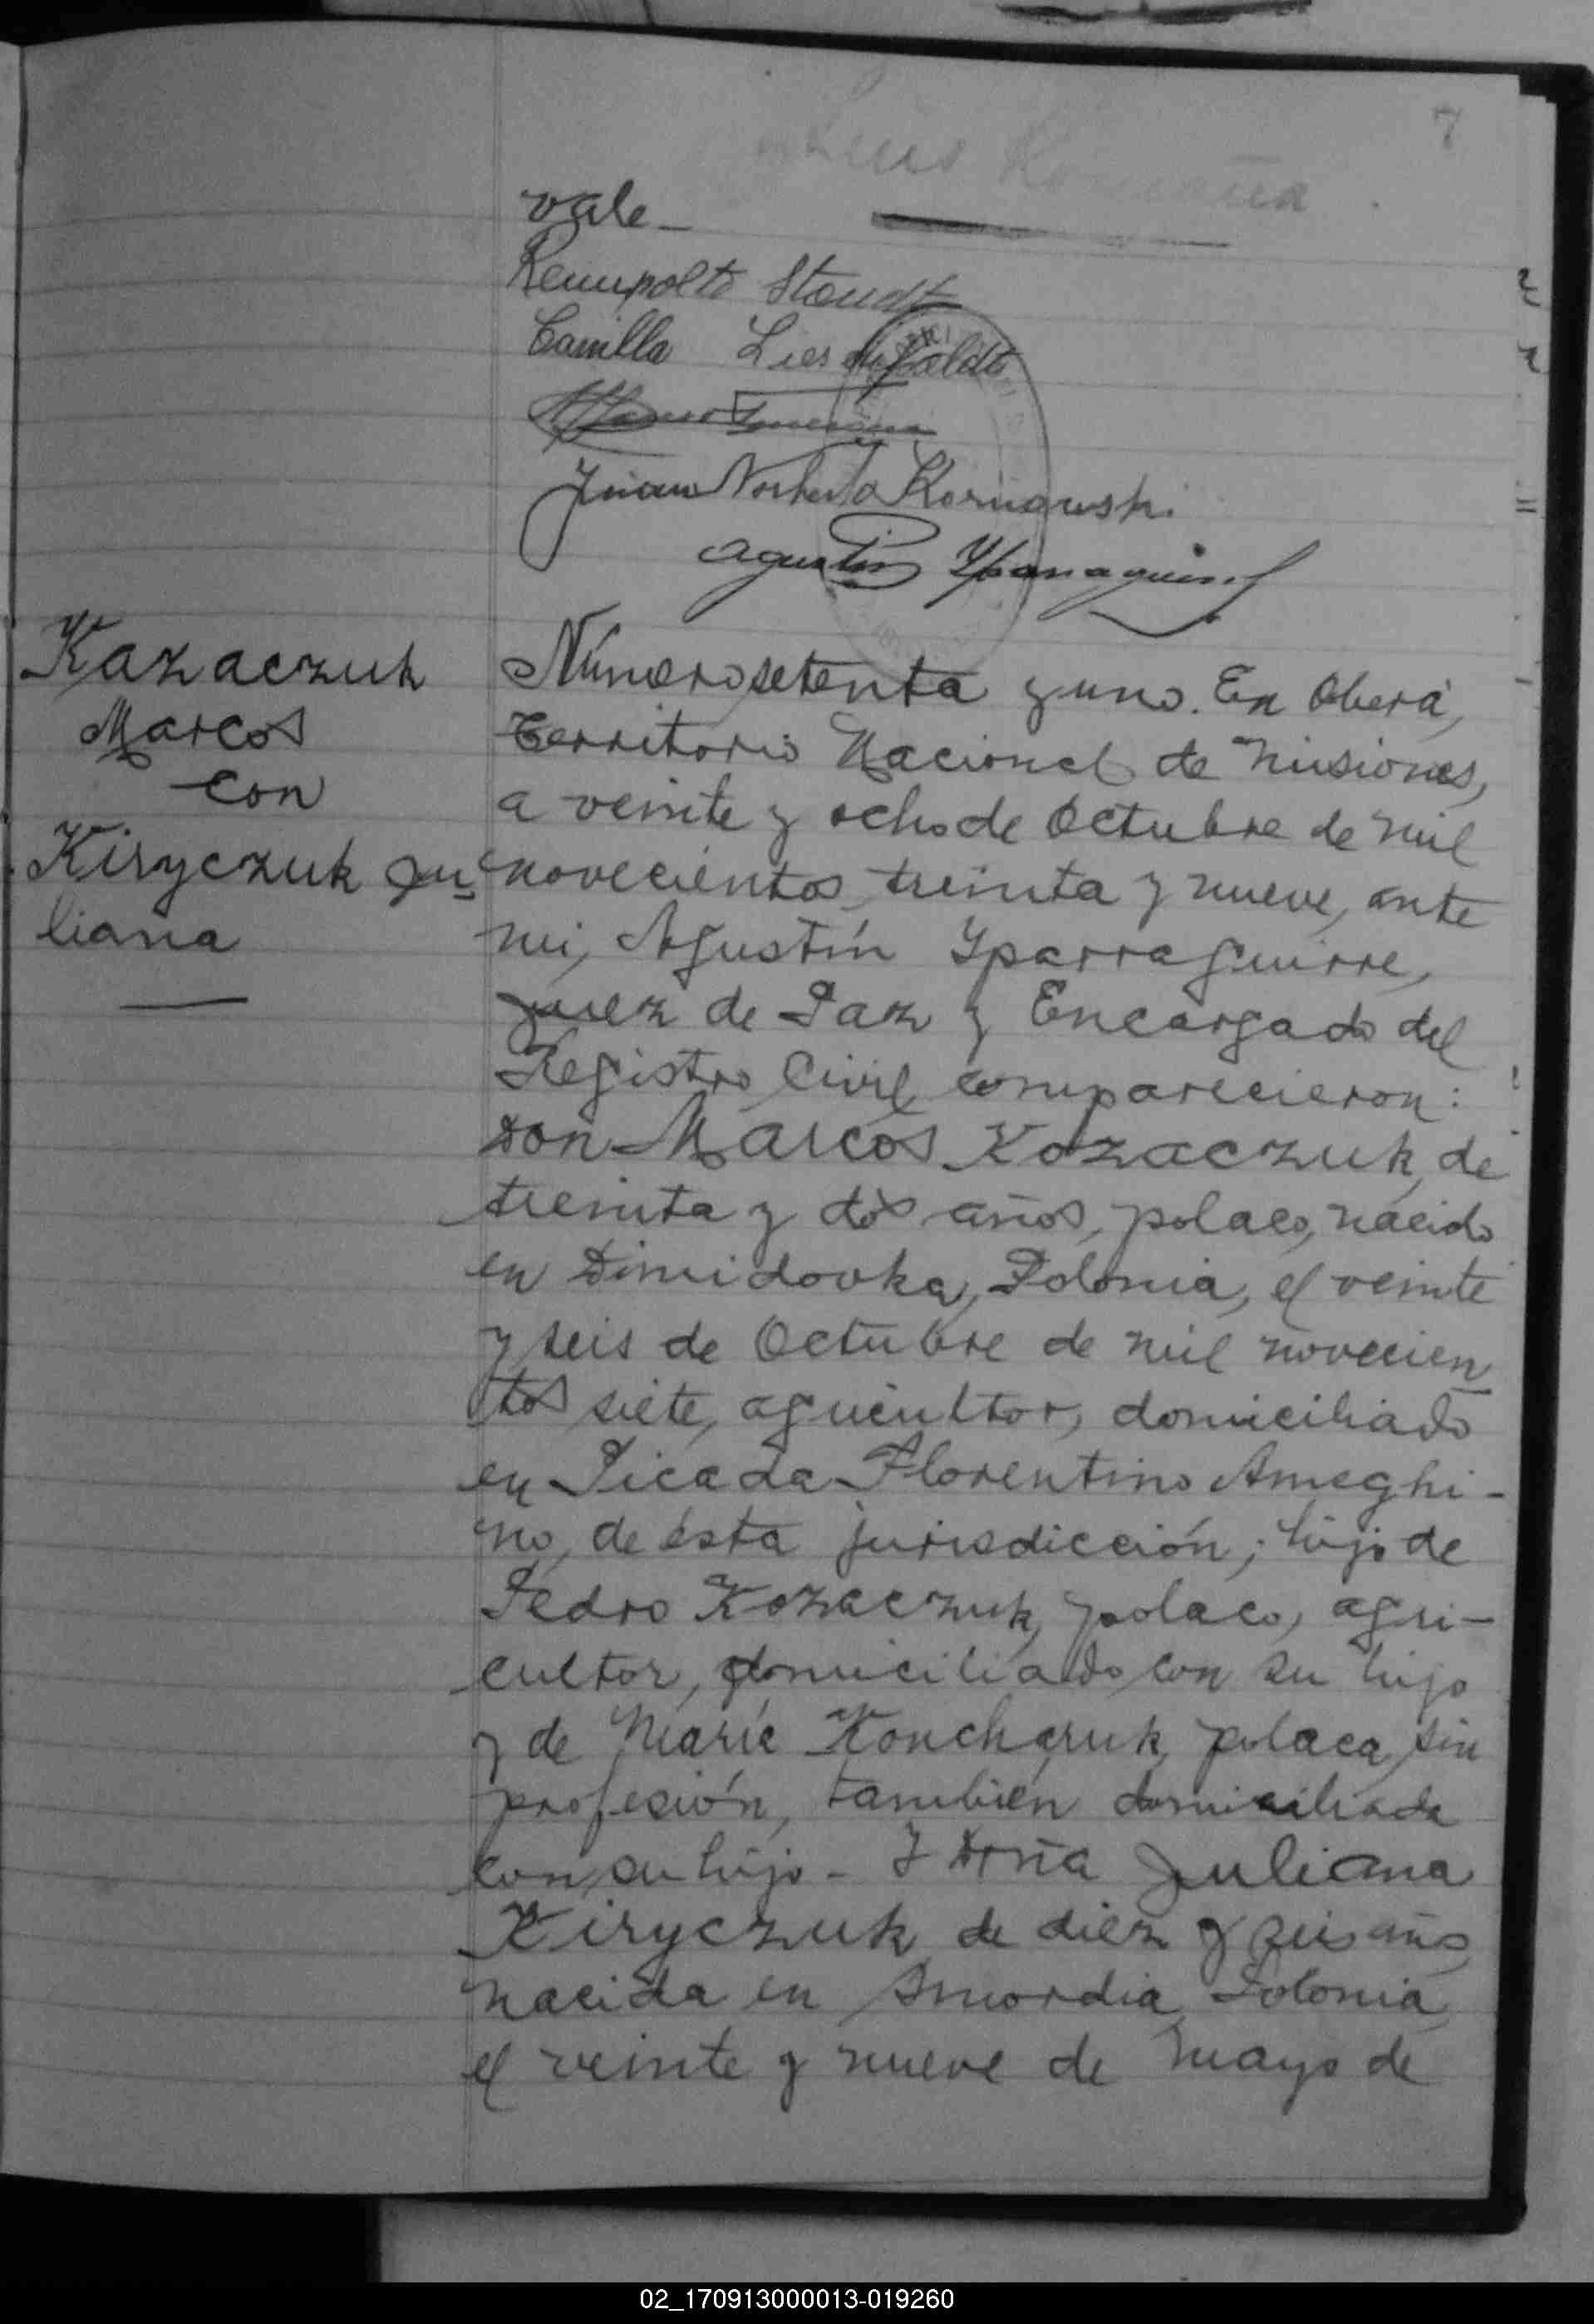 7
vale_
Camilla
Juan Norberto Kornowski
Agustin Yparraguirre
Kazaczuk
Marcos
con
Kiryczuk Ju
liana
Número setenta y uno. En Oberá,
Territorio Nacional de Misiones,
a veinte y ocho de Octubre de mil
novecientos treinta y nueve, ante
mi, Agustín Yparraguirre,
Juez de Paz y Encargado del
Registro Civil comparecieron:
Don Marcos Kozaczuk, de
treinta y dos años, polaco, nacido
en Dimidovka, Polonia, el veinte
y seis de Octubre de mil novecien
tos siete, agricultor, domiciliado
en Picada Florentino Ameghi-
no, de ésta jurisdicción; hijo de
Pedro Kozaczuk, polaco, agri-
cultor, domiciliado con su hijo
y de María Koncharuk, polaca, sin
profesión, también domiciliada
con su hijo - Y Doña Juliana
Kiryczuk de diez y seis años
nacida en Smordia, Polonia,
el veinte y nueve de Mayo de
02_170913000013-019260